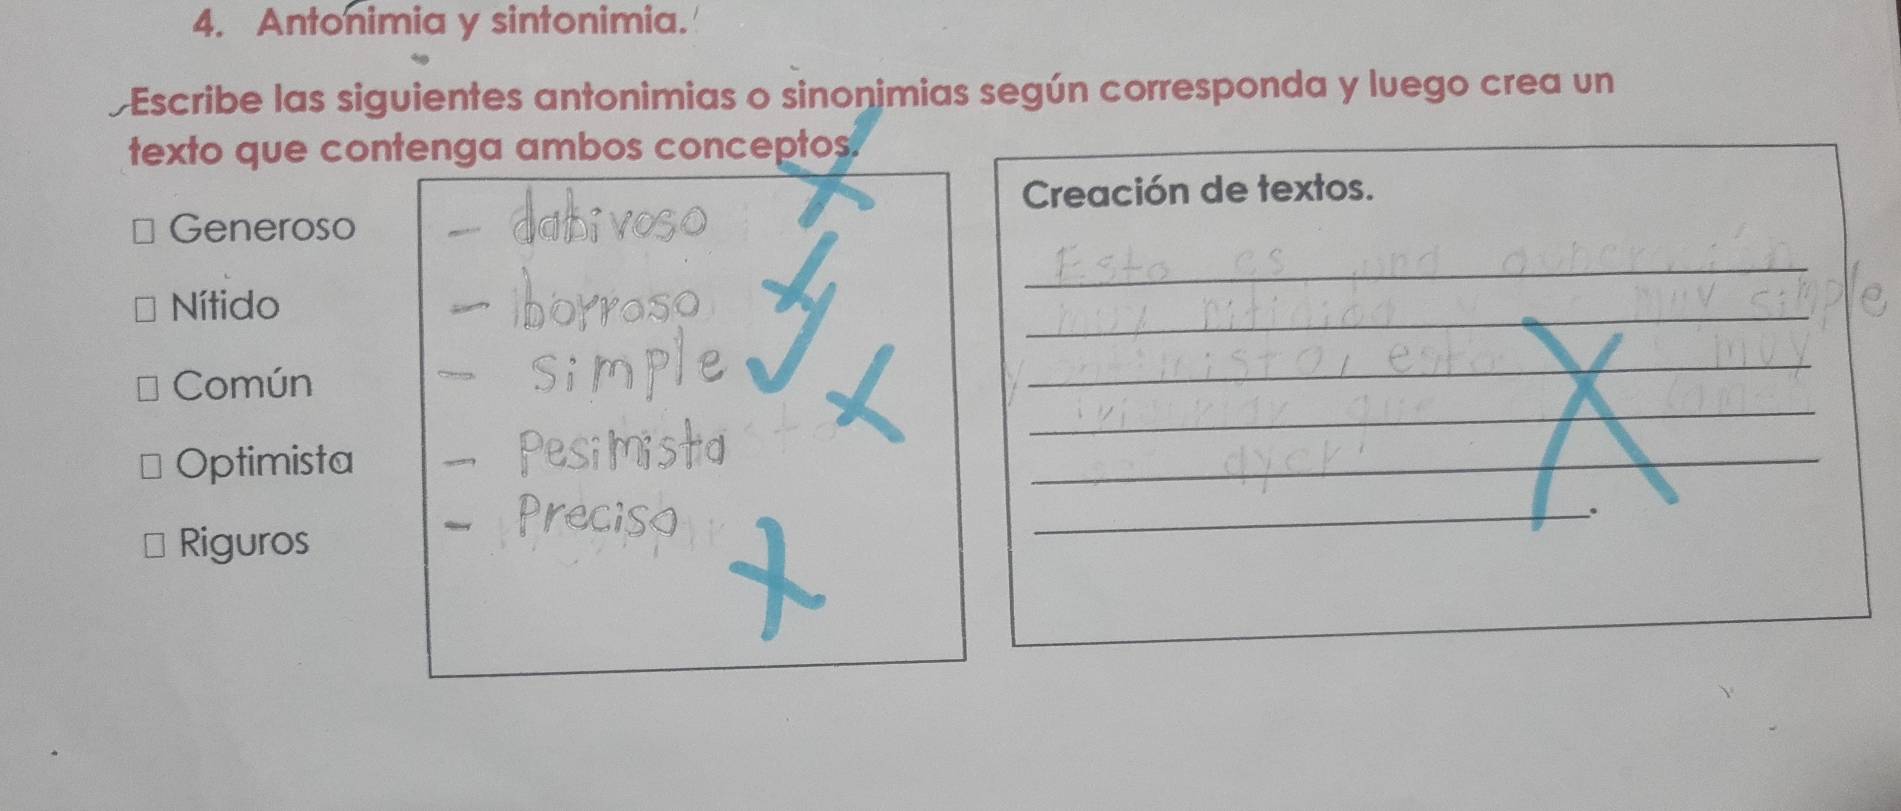 4. Antonimia y sintonimia.
Escribe las siguientes antonimias o sinonimias según corresponda y luego crea un
texto que contenga ambos conceptos.
Generoso
- dabivoso
Nítido
- borroso
Común
- simple
Optimista
- Pesimista
Riguros
- Preciso
Creación de textos.
Esto es una
muy muy simple
y esto muy
que
ayer